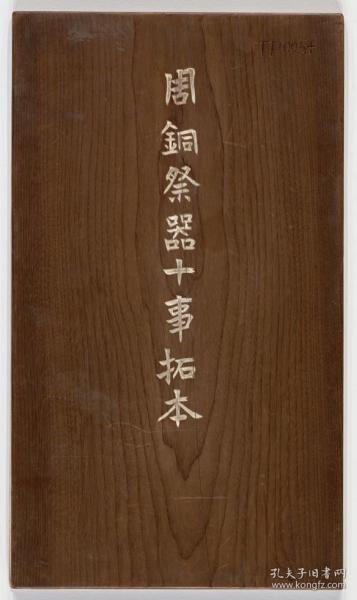 周銅祭器十事拓本
孔夫子旧书网
www.kongfz.com